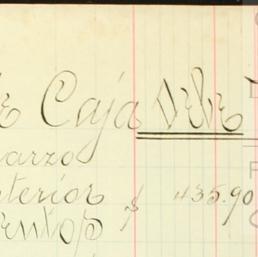 e Caja Debe
arzo
terior $ 435.90
entos